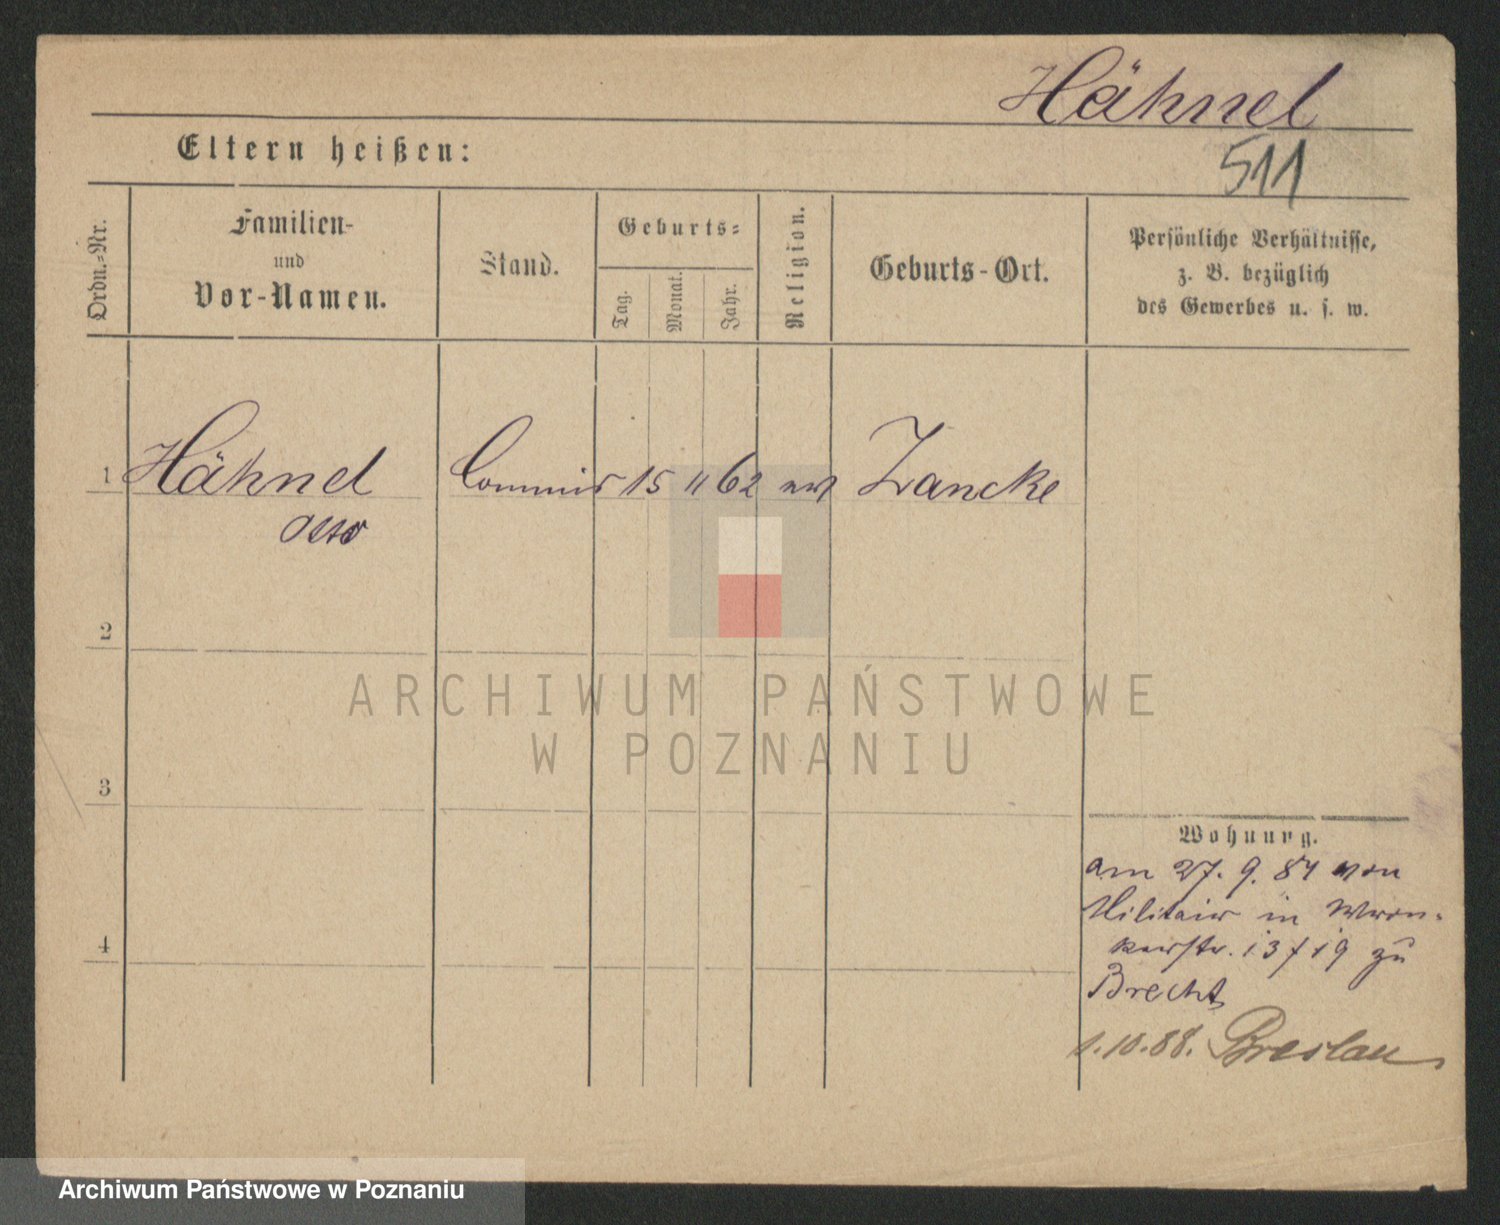 Hähnel
Eltern heißen:
511
Ordn.-Nr.
Familien-
und
Vor-Namen.
Stand.
Geburts-
Tag.
Monat.
Jahr.
Religion.
Geburts-Ort.
Persönliche Verhältnisse,
z. B. bezüglich
des Gewerbes u. s. w.
1 Hähnel Commis 15 11 62 Zancke
Otto
2
ARCHIWUM PAŃSTWOWE
W POZNANIU
3
Wohnung.
am 27. 9. 87 von
Militair in Wron-
kerstr. 13/19 zu
4
Brecht
1.10.88. Breslau
Archiwum Państwowe w Poznaniu